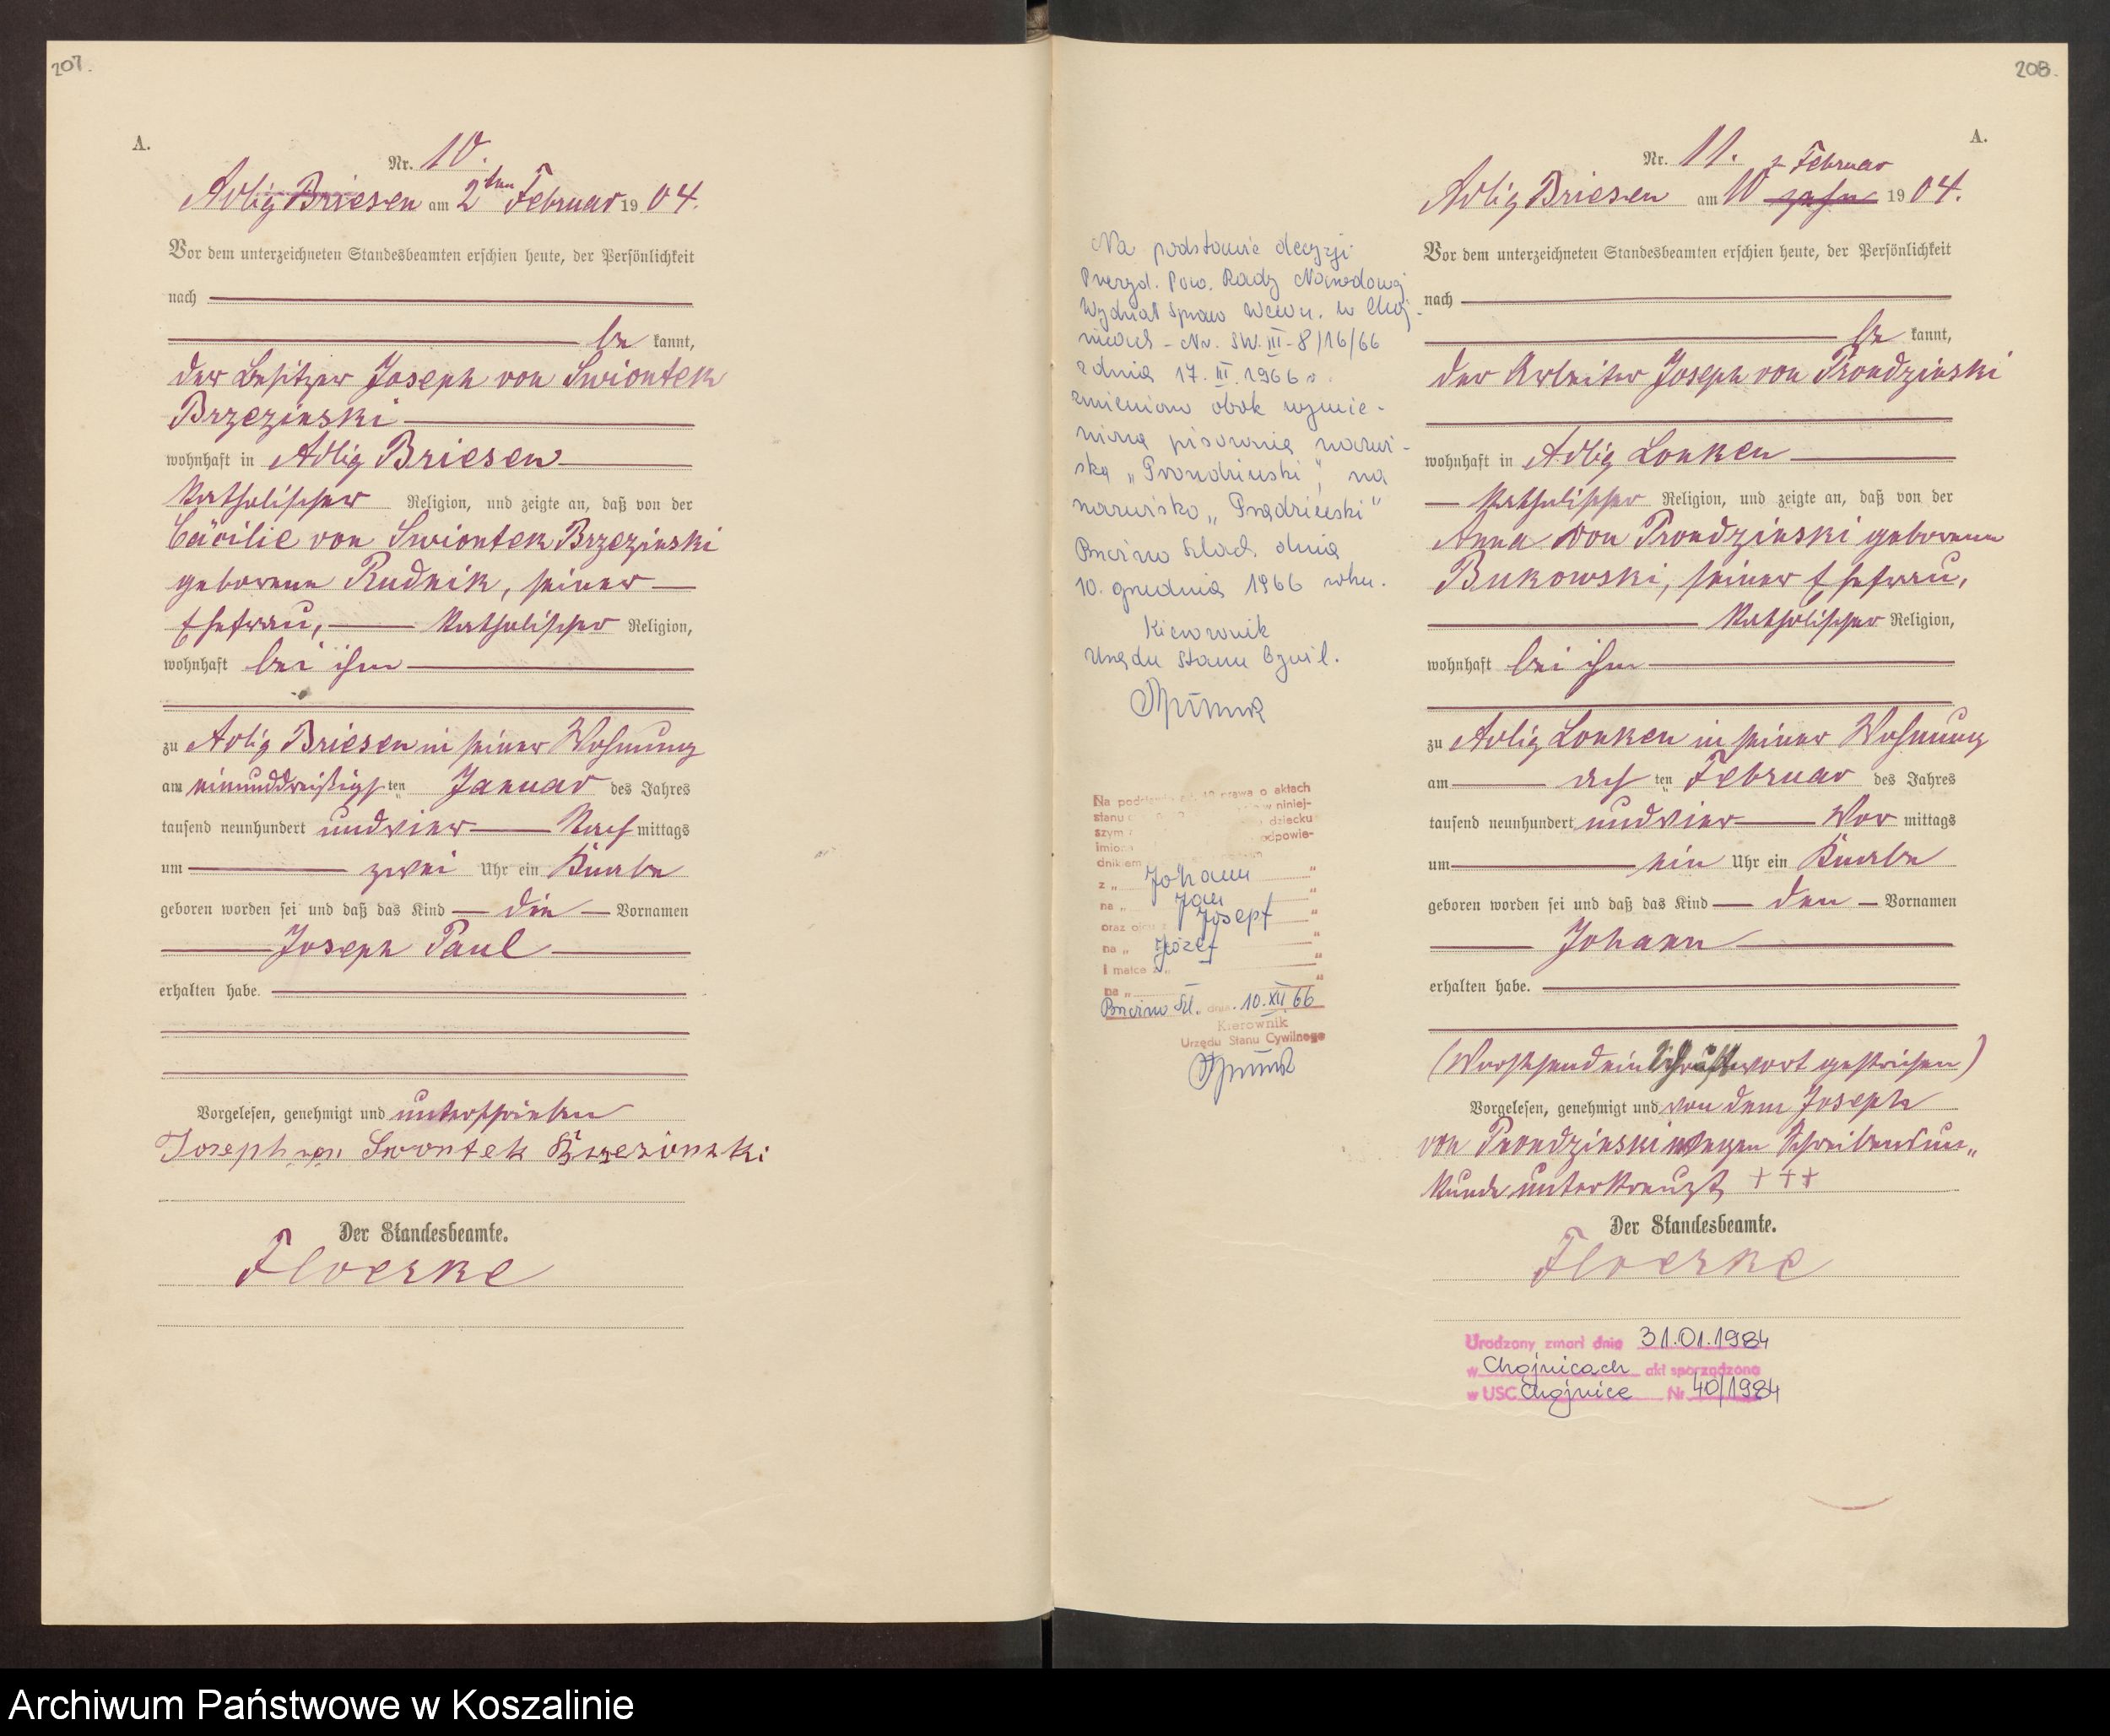 207.
A.
Nr. 10.
Adlig Briesen am 2ten Februar 1904.
Vor dem unterzeichneten Standesbeamten erschien heute, der Persönlichkeit
nach
be kannt,
der Besitzer Joseph von Swiontek
Brzezinski
wohnhaft in Adlig Briesen
katholischer Religion, und zeigte an, daß von der
Cäcilie von Swiontek Brzezinski
geborene Rudnik, seiner
Ehefrau, katholischer Religion,
wohnhaft bei ihm
zu Adlig Briesen in seiner Wohnung
am einunddreißigsten Januar des Jahres
tausend neunhundert und vier Nach mittags
um zwei Uhr ein Knabe
geboren worden sei und daß das Kind die Vornamen
Joseph Paul
erhalten habe.
Vorgelesen, genehmigt und unterschrieben
Joseph von Swontek Brzezinski
Der Standesbeamte.
Floerke
208.
A.
Nr. 11.
Februar
Adlig Briesen am 10 zehn 1904.
Vor dem unterzeichneten Standesbeamten erschien heute, der Persönlichkeit
nach
be kannt,
der Arbeiter Joseph von Prondzinski
wohnhaft in Adlig Lonken
katholischer Religion, und zeigte an, daß von der
Anna von Prondzinski geborene
Bukowski, seiner Ehefrau,
katholischer Religion,
wohnhaft bei ihm
zu Adlig Lonken in seiner Wohnung
am ach ten Februar des Jahres
tausend neunhundert und vier Vor mittags
um ein Uhr ein Knabe
geboren worden sei und daß das Kind den Vornamen
Johann
erhalten habe.
(Vorstehend ein wort gestrichen)
Vorgelesen, genehmigt und von dem Joseph
von Prondzinski wegen Schreibensun„
kunde unterkreuzt, +++
Der Standesbeamte.
Floerke
Urodzony zmarł dnia 31.01.1984
w Chojnicach akt sporządzono
w USC Chojnice Nr 40/1984
Na podstawie decyzji
Prezyd. Pow. Rady Narodowej
Wydział Spraw Wewn. w Choj-
nicach - Nr. SW. III-8/16/66
z dnia 17. III. 1966 r.
zmieniono obok wymie-
nioną pisownię nazwi-
ska „Prondzinski", na
nazwisko „Prądziński"
Brzeźno Szlach. dnia
10. grudnia 1966 roku.
Kierownik
Urzędu Stanu Cywil.
Na podstawie prawa o aktach
stanu w niniej-
szym dziecku
imiona odpowie-
dnikiem
z „ Johann "
na „ Jan "
oraz ojcu z Josepf "
na „ Józef "
i matce z „ "
na „ "
Brzeźno Szl. dnia 10.XII 66
Kierownik
Urzędu Stanu Cywilnego
Archiwum Państwowe w Koszalinie